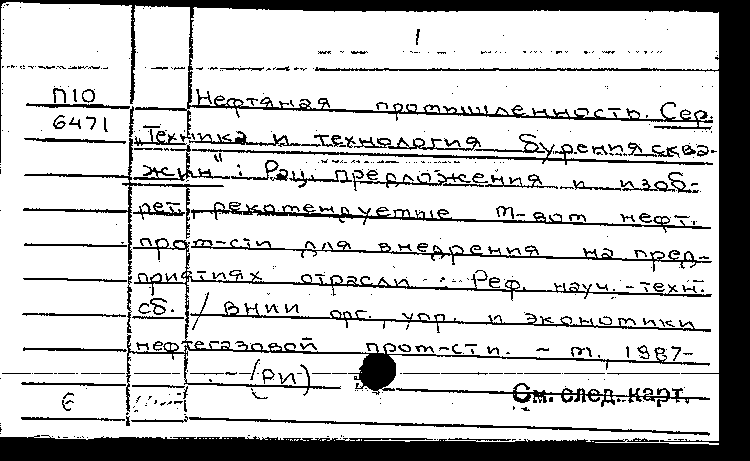 1
П10 Нефтяная промышленность. Сер.
6471 „Техника и технология бурения сква-
жин" : Рац. предложения и изоб-
рет., рекомендуемые М-вом нефт.
пром-сти для внедрения на пред-
приятиях отрасли : Реф. науч.-техн.
сб. / ВНИИ орг., упр. и экономики
нефтегазовой пром-сти. - М., 1987-
. - (РИ)
6 См. след. карт.